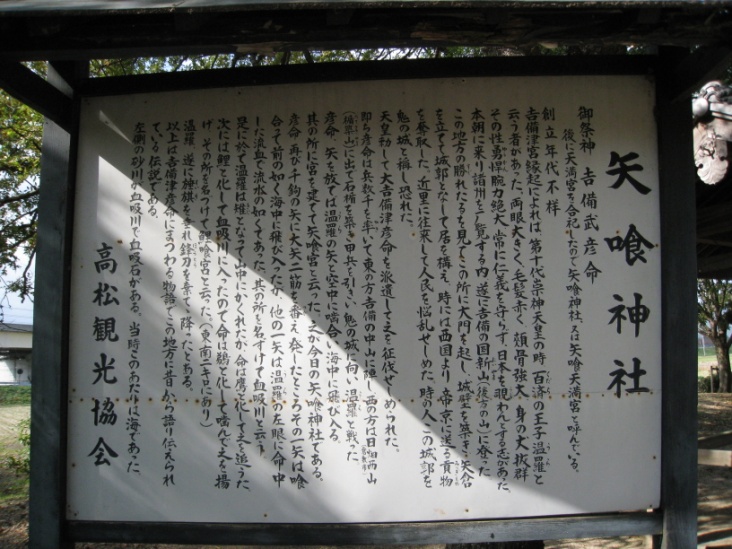 矢喰神社
御祭神 吉備武彦命
後に天満宮を合祀したので矢喰神社、又は矢喰天満宮と呼んでいる。
創立年代不祥
吉備津宮縁起によれば、第十代崇神天皇の時 百済の王子温羅と
云う者があった。両眼大きく、毛髪赤く、顔骨強大、身の丈抜群
その性勇悍腕力絶大 常に仁義を守らず、日本を覗わんとする志があった。
本朝に来り諸州を一覧する内、遂に吉備の国新山(後方の山)に登った
この地方の勝れたるを見て、この所に大門を起し、城壁を築き矢倉
を立てて城郭となして居を構え、時には西国より帝京に送る貢物
を奪取した。近里に往来して人民を悩乱せしめた。時の人この城郭を
鬼の城と稱し恐れた。
天皇勅して大吉備津彦命を派遣して之を征伐せしめられた。
即ち彦命は兵数千を率いて東の方吉備の中山に陣し、西の方は日畑西山
に出て石楯を築き甲兵を引き、鬼の城に向い温羅と戦った
彦命 矢を放てば温羅の矢と空中に噛合い海中に飛び入る。
其の所に宮を建てて矢喰宮と云った。之が今日の矢喰神社である。
彦命 再び千鈞の矢に大矢二筋を番え、発したところその一矢は喰
合って前の如く海中に飛び入ったが、他の一矢は温羅の左眼に命中
した流血で流水の如くであった。其の所を名ずけて血吸川と云う
是に於て温羅は雉となって山中にかくれたが、命は鷹と化して之を追うた
次には鯉と化して血吸川に入ったので命は鵜と化して噛んで之を揚
げ、その所を名つけて鯉喰宮と云った。(東南二キロにあり)
温羅 遂に神旗を奪れ鋒刀を棄て、降ったとある。
以上は吉備津彦命にまつわる物語でこの地方に昔から語り伝えられ
ている伝説である。
左側の砂川が血吸川で血吸石がある。当時このあたりは海であった
高松観光協会